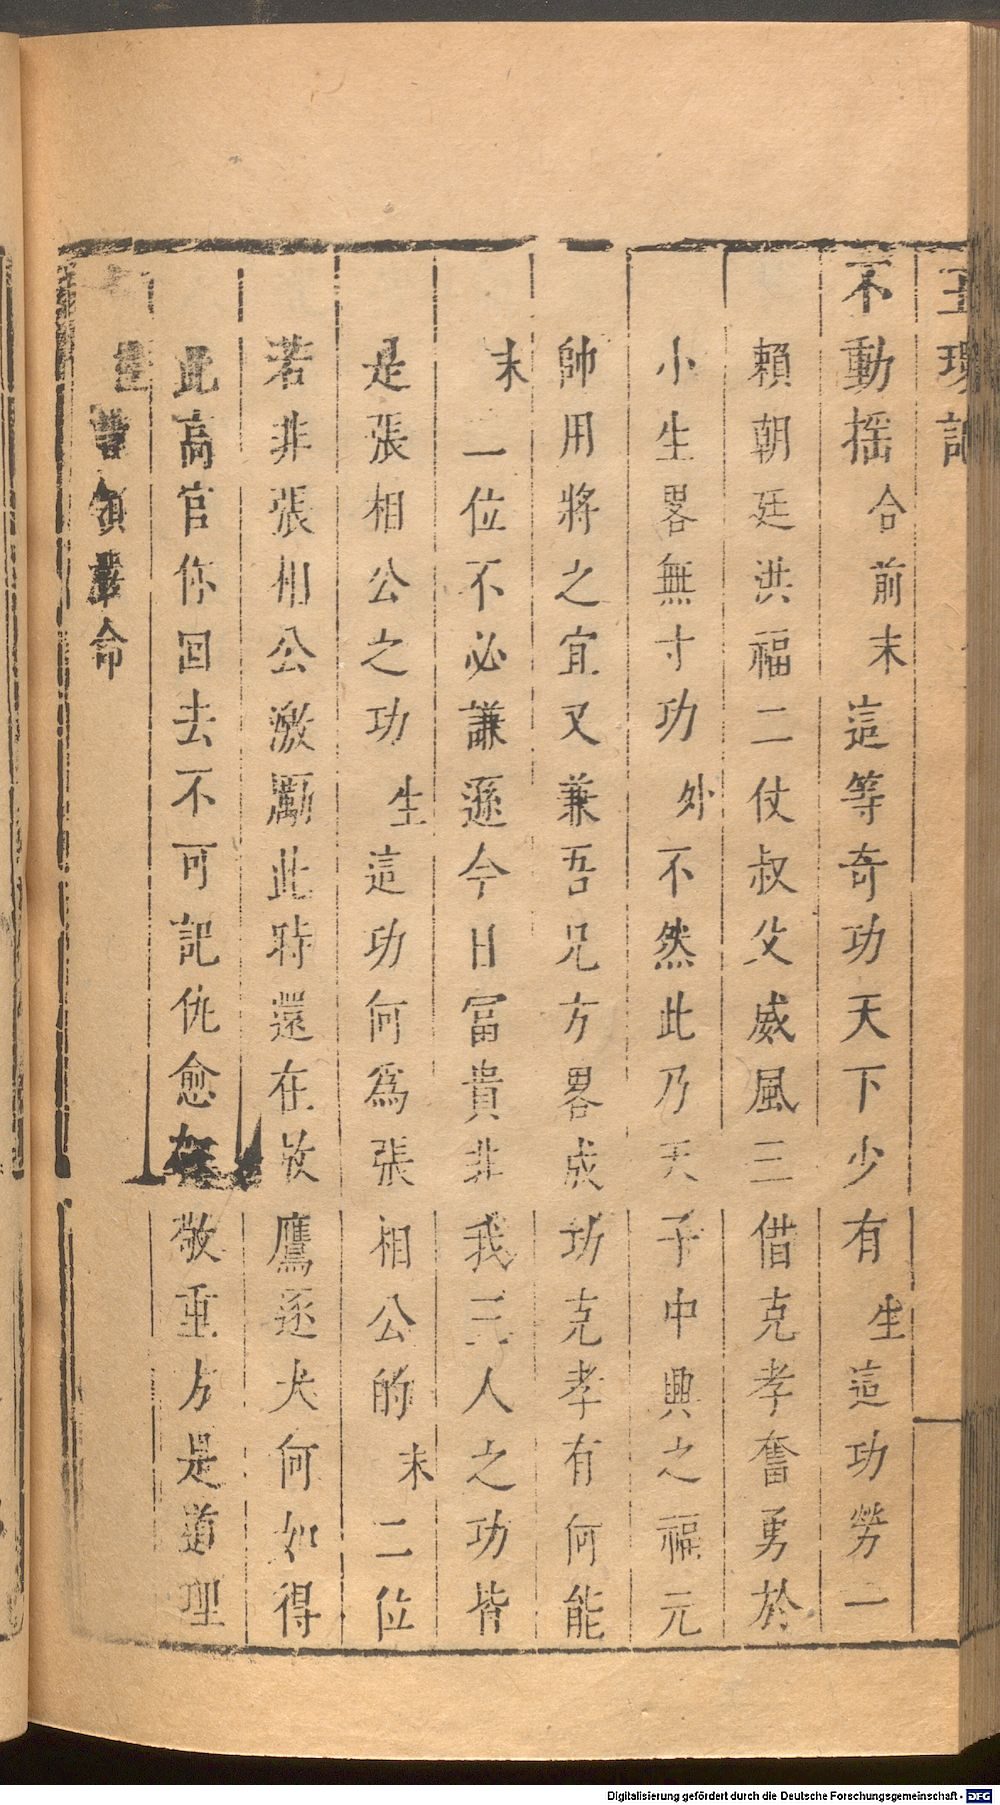 玉環記
不動揺合前末這等奇功天下少有生這功勞一
賴朝廷洪福二仗叔父威風三借克孝奮勇於
小生畧無寸功外不然此乃天子中興之福元
帥用將之宜又兼吾兄方畧成功克孝有何能
末二位不必謙遜今日冨貴非我三人之功皆
是張相公之功生這功何爲張相公的末二位
若非張相公激勵此時還在放鷹逐犬何如得
此高官你回去不可記仇愈加敬重方是道理
生謹領嚴命
Digitalisierung gefördert durch die Deutsche Forschungsgemeinschaft - DFG